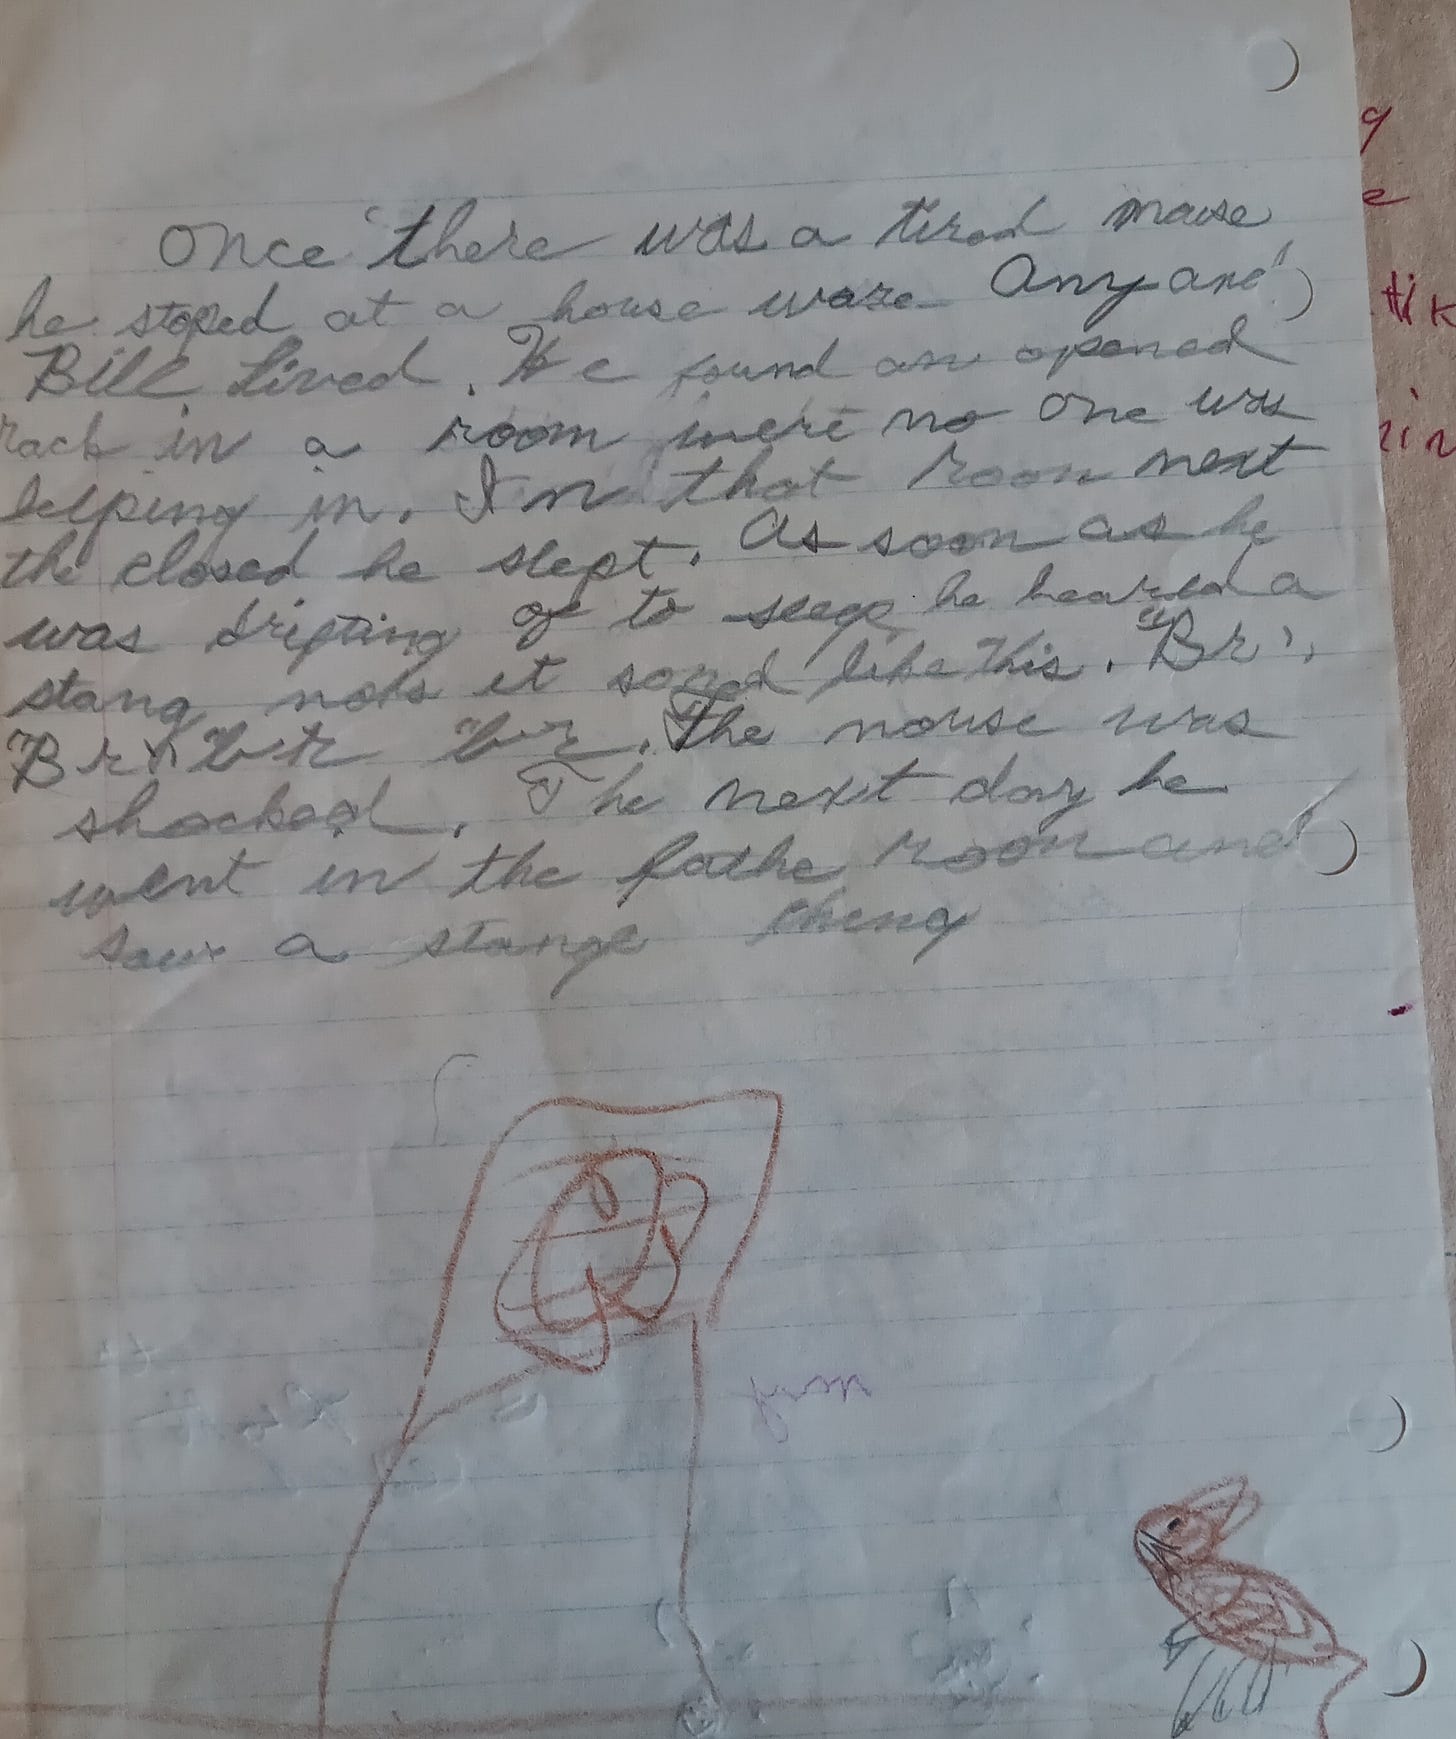 Once there was a tired mouse
he stoped at a house ware Amy and
Bill lived. He found an opened
rack in a room were no one was
lelping in. In that room next
the closed he slept. As soon as he
was drifting of to sleep he heared a
stang nois it sond like this. "Br",
Br" br br. The mouse was
shocked. The next day he
went in the fathe room and
saw a stange thing